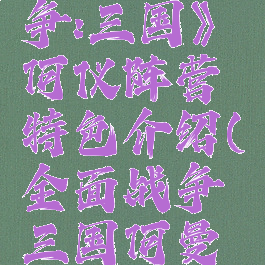 争:三国》
阿仪阵营
特色介绍(
全面战争
三国阿曼